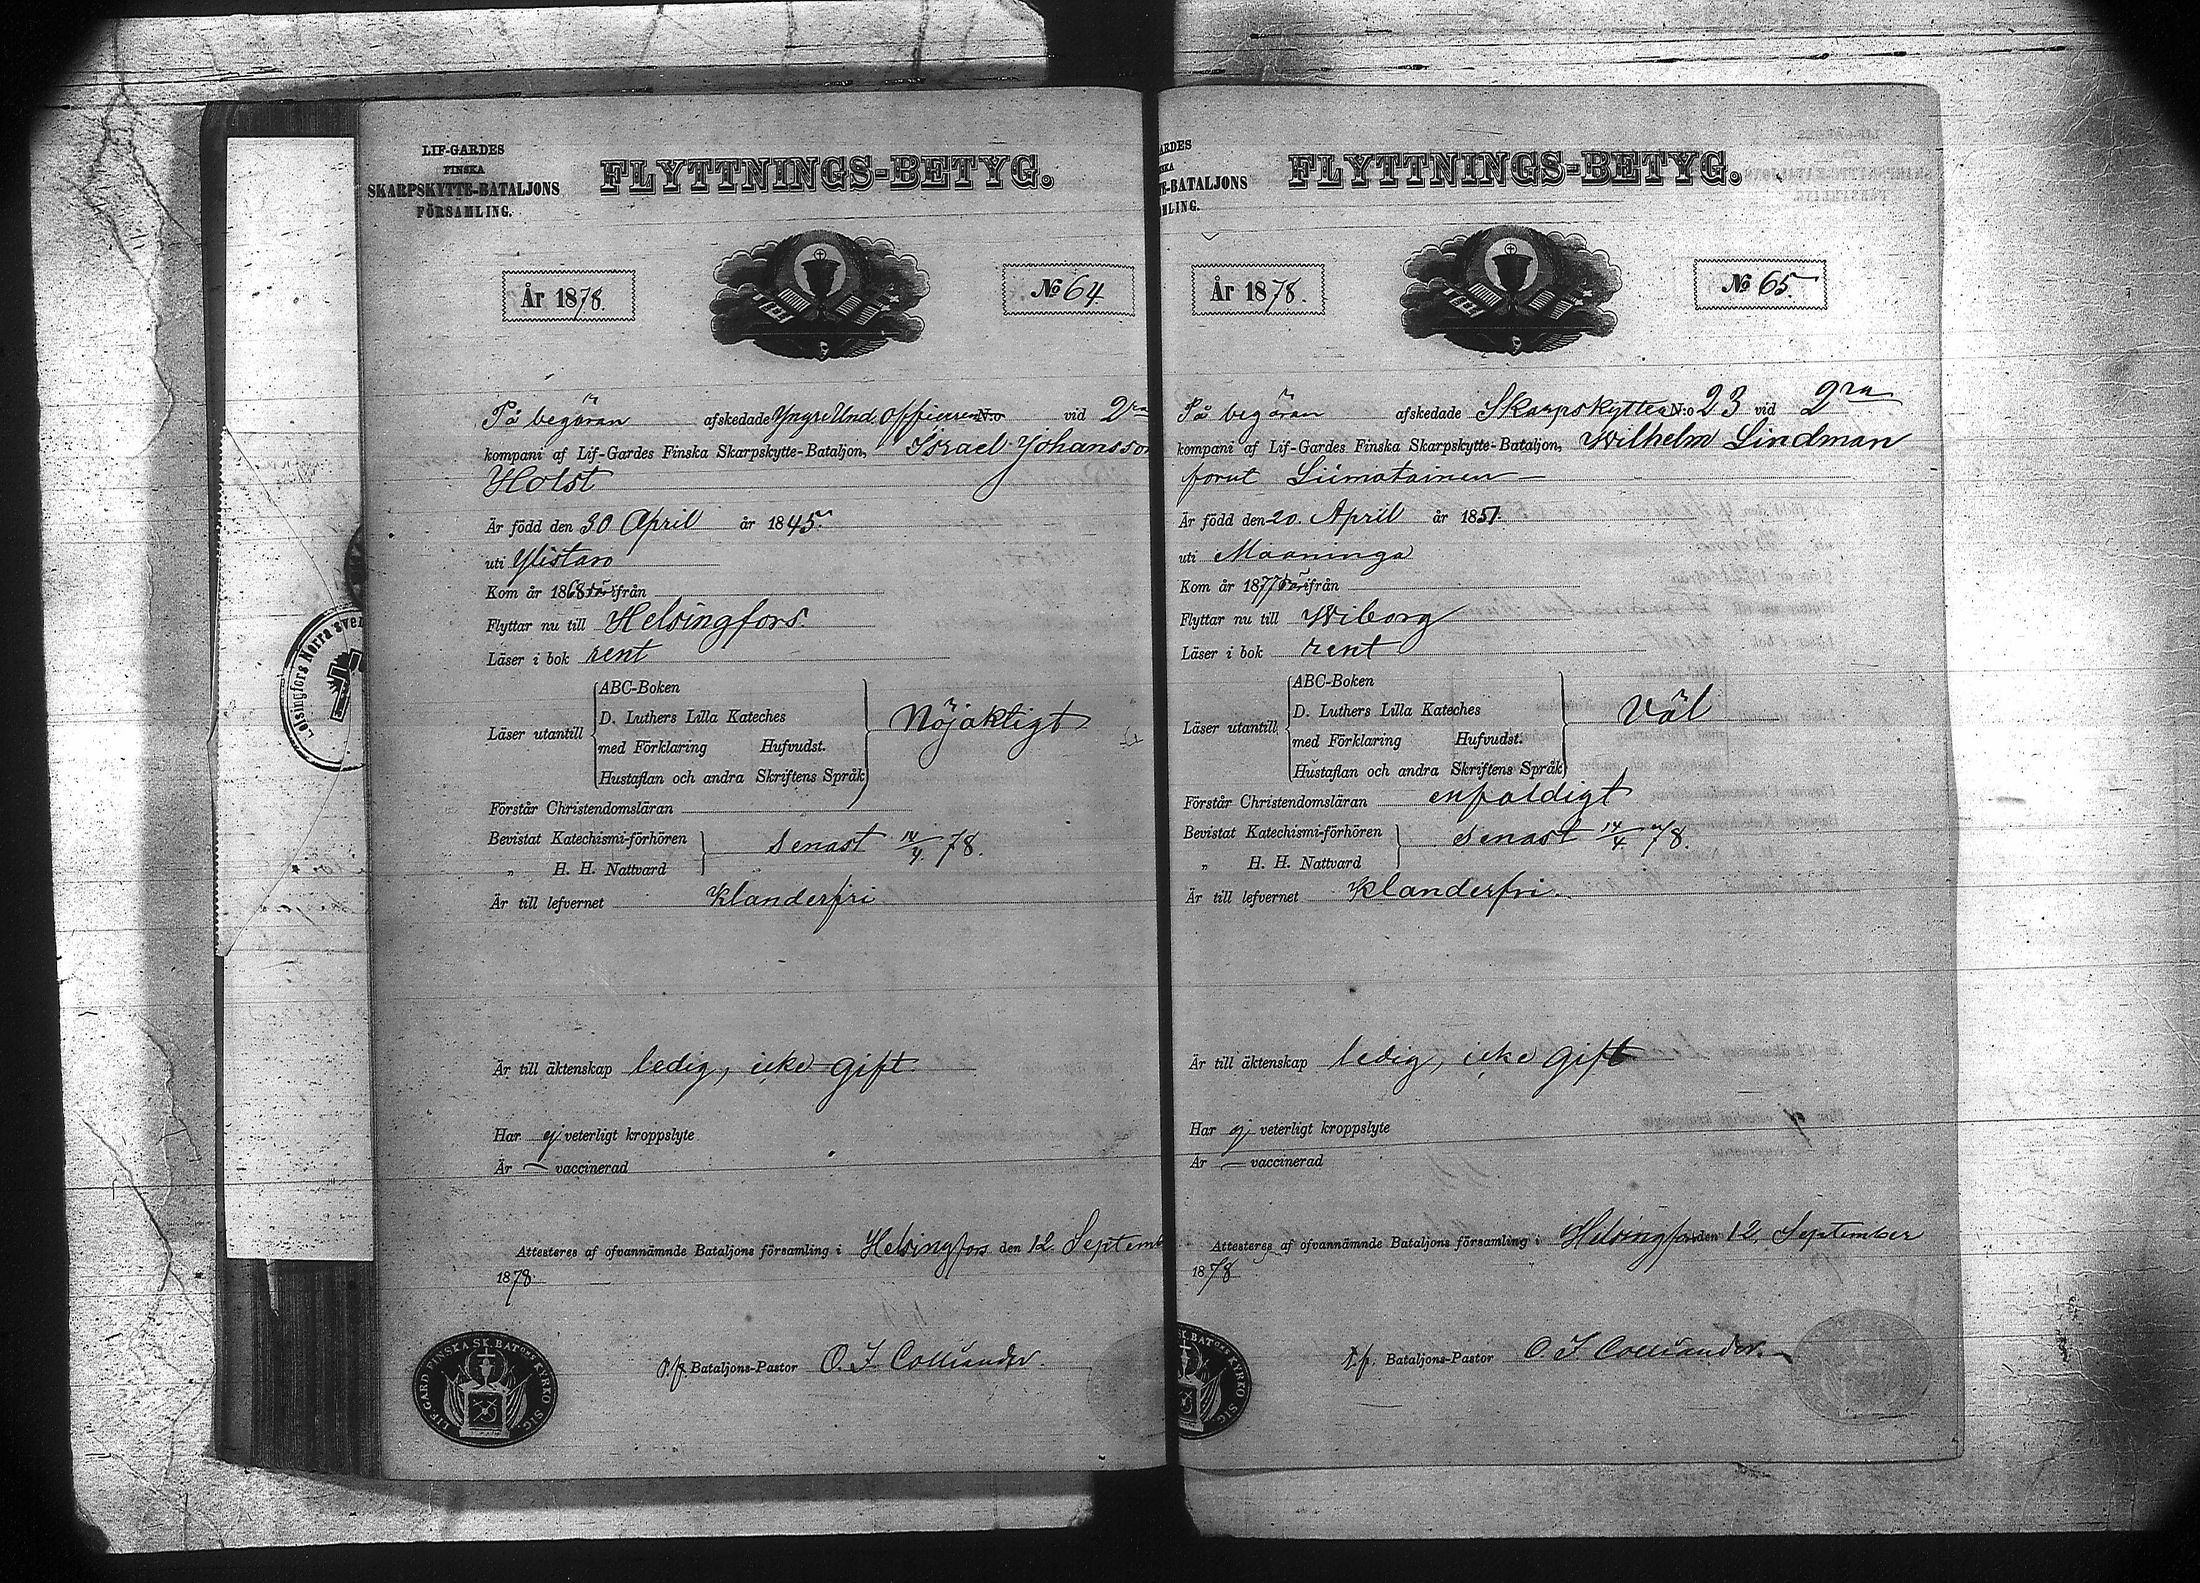 LIF-GARDES
FINSKA
SKARPSKYTTE-BATALJONS
FÖRSAMLING.
FLYTTNINGS-BETYG.
År 1878.
No 64
På begäran afskedade Yngre Und. officieren N:o vid 2ra
kompani af Lif-Gardes Finska Skarpskytte-Bataljon, Israel Johansson
Holst
Är född den 30 April år 1845.
uti Ylistaro
Kom år 1868 härifrån
Flyttar nu till Helsingfors.
Läser i bok rent
Läser utantill
ABC-Boken
D. Luthers Lilla Kateches
med Förklaring Hufvudst.
Hustaflan och andra Skriftens Språk
Nöjaktigt
Förstår Christendomsläran
Bevistat Katechismi-förhören
„ H. H. Nattvard
senast 14/4 78.
Är till lefvernet klanderfri
Är till äktenskap ledig, icke gift
Har ej veterligt kroppslyte
Är — vaccinerad
Attesteras af ofvannämnde Bataljons församling i Helsingfors den 12 Septemb
1878.
P.f. Bataljons-Pastor O. I. Colliander.
LIF. GARD. FINSKA SK. BATONS KYRKO SIG.
Helsingfors Norra sve
ARDES
SKA
TE-BATALJONS
MLING.
FLYTTNINGS-BETYG.
År 1878.
No 65.
På begäran afskedade Skarpskytten N:o 23 vid 2ra
kompani af Lif-Gardes Finska Skarpskytte-Bataljon, Wilhelm Lindman
forut Liimatainen —
Är född den 20. April år 1851.
uti Maaninga
Kom år 1877 härifrån
Flyttar nu till Wiborg
Läser i bok rent
Läser utantill
ABC-Boken
D. Luthers Lilla Kateches
med Förklaring Hufvudst.
Hustaflan och andra Skriftens Språk
Väl
Förstår Christendomsläran enfaldigt
Bevistat Katechismi-förhören
„ H. H. Nattvard
senast 14/4 78.
Är till lefvernet klanderfri.
Är till äktenskap ledig, icke gift
Har ej veterligt kroppslyte
Är — vaccinerad
Attesteras af ofvannämnde Bataljons församling i Helsingfors den 12. September
1878
P.f. Bataljons-Pastor O. I. Colliander.
SK. BATONS KYRKO SIG.